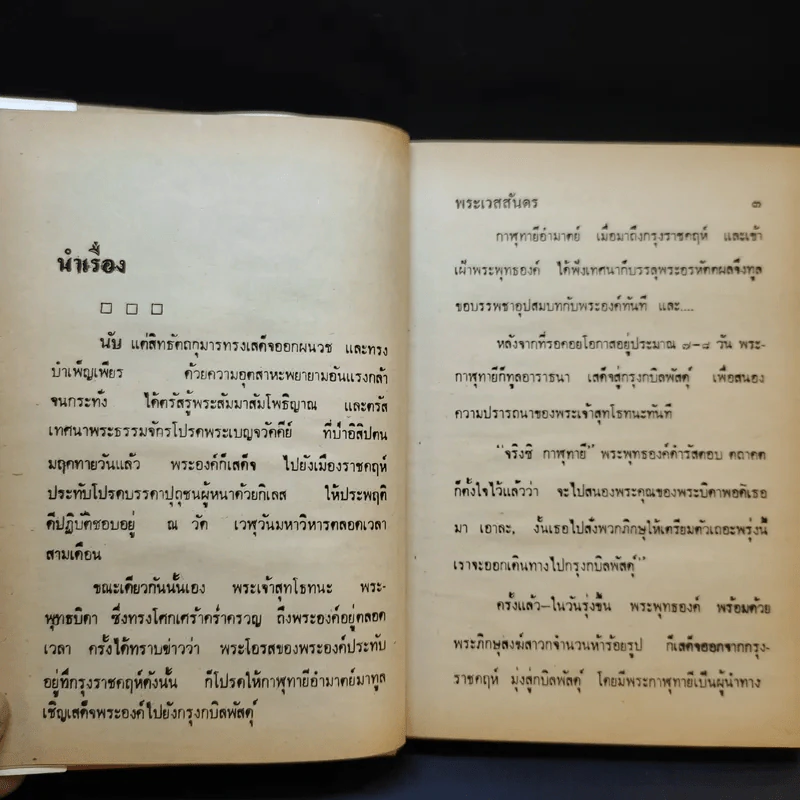 นำเรื่อง
□ □ □
นับ แต่สิทธัตถกุมารทรงเสด็จออกผนวช และทรง
บำเพ็ญเพียร ด้วยความอุตสาหะพยายามอันแรงกล้า
จนกระทั่ง ได้ตรัสรู้พระสัมมาสัมโพธิญาณ และตรัส
เทศนาพระธรรมจักรโปรดพระเบญจวัคคีย์ ที่ป่าอิสิปตน
มฤคทายวันแล้ว พระองค์ก็เสด็จ ไปยังเมืองราชคฤห์
ประทับโปรดบรรดาปุถุชนผู้หนาด้วยกิเลส ให้ประพฤติ
ดีปฏิบัติชอบอยู่ ณ วัด เวฬุวันมหาวิหารตลอดเวลา
สามเดือน
ขณะเดียวกันนั้นเอง พระเจ้าสุทโธทนะ พระ-
พุทธบิดา ซึ่งทรงโศกเศร้าคร่ำครวญ ถึงพระองค์อยู่ตลอด
เวลา ครั้งได้ทราบข่าวว่า พระโอรสของพระองค์ประทับ
อยู่ที่กรุงราชคฤห์ดังนั้น ก็โปรดให้กาฬุทายีอำมาตย์มาทูล
เชิญเสด็จพระองค์ไปยังกรุงกบิลพัสดุ์
พระเวสสันดร ๓
กาฬุทายีอำมาตย์ เมื่อมาถึงกรุงราชคฤห์ และเข้า
เฝ้าพระพุทธองค์ ได้ฟังเทศนาก็บรรลุพระอรหัตตผลจึงทูล
ขอบรรพชาอุปสมบทกับพระองค์ทันที และ....
หลังจากที่รอคอยโอกาสอยู่ประมาณ ๗-๘ วัน พระ-
กาฬุทายีก็ทูลอาราธนา เสด็จสู่กรุงกบิลพัสดุ์ เพื่อสนอง
ความปรารถนาของพระเจ้าสุทโธทนะทันที
"จริงซิ กาฬุทายี" พระพุทธองค์ดำรัสตอบ ตถาคต
ก็ตั้งใจไว้แล้วว่า จะไปสนองพระคุณของพระบิดาพอดีเธอ
มา เอาละ, งั้นเธอไปสั่งพวกภิกษุให้เตรียมตัวเถอะพรุ่งนี้
เราจะออกเดินทางไปกรุงกบิลพัสดุ์"
ครั้งแล้ว-ในวันรุ่งขึ้น พระพุทธองค์ พร้อมด้วย
พระภิกษุสงฆ์สาวกจำนวนห้าร้อยรูป ก็เสด็จออกจากกรุง-
ราชคฤห์ มุ่งสู่กบิลพัสดุ์ โดยมีพระกาฬุทายีเป็นผู้นำทาง